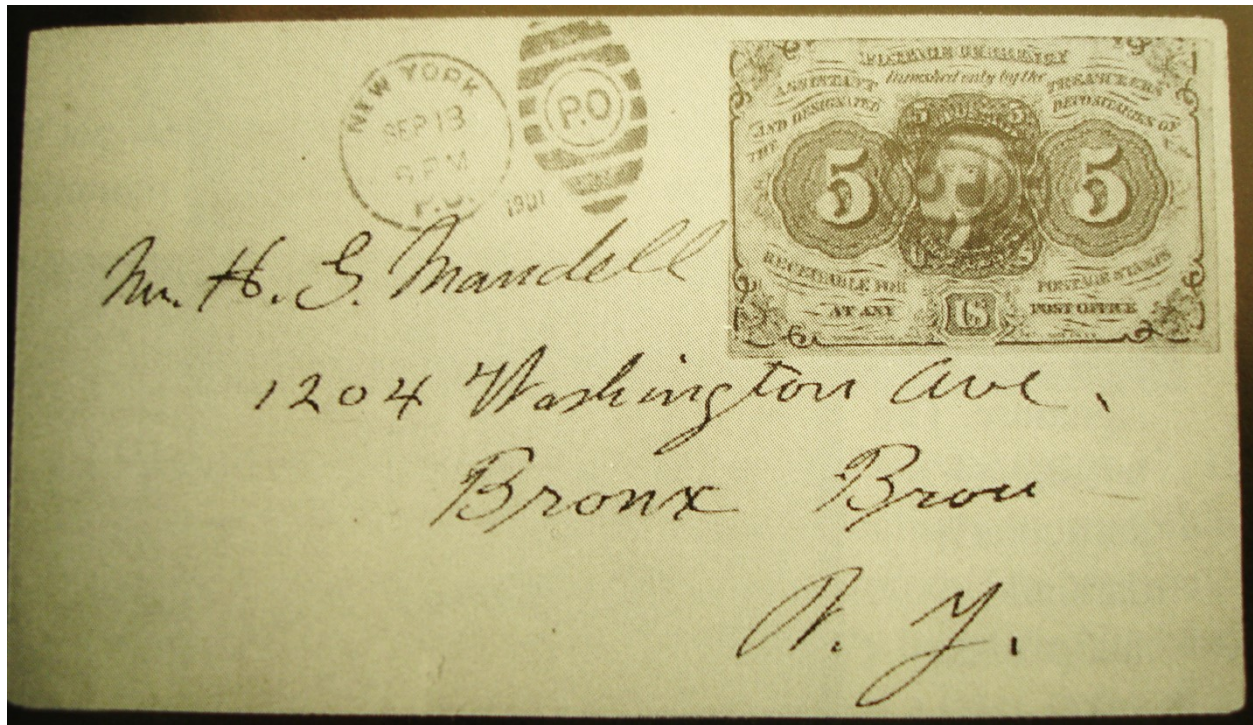 NEW YORK
SEP 13
P.M
P.O.
1901
P.O
POSTAGE CURRENCY
furnished only by the
ASSISTANT TREASURERS
AND DESIGNATED DEPOSITARIES OF
THE U.S.
5 5
5 5
RECEIVABLE FOR POSTAGE STAMPS
AT ANY US POST OFFICE
Mr. H. G. Mandell
1204 Washington Ave.
Bronx Brou
N. Y.